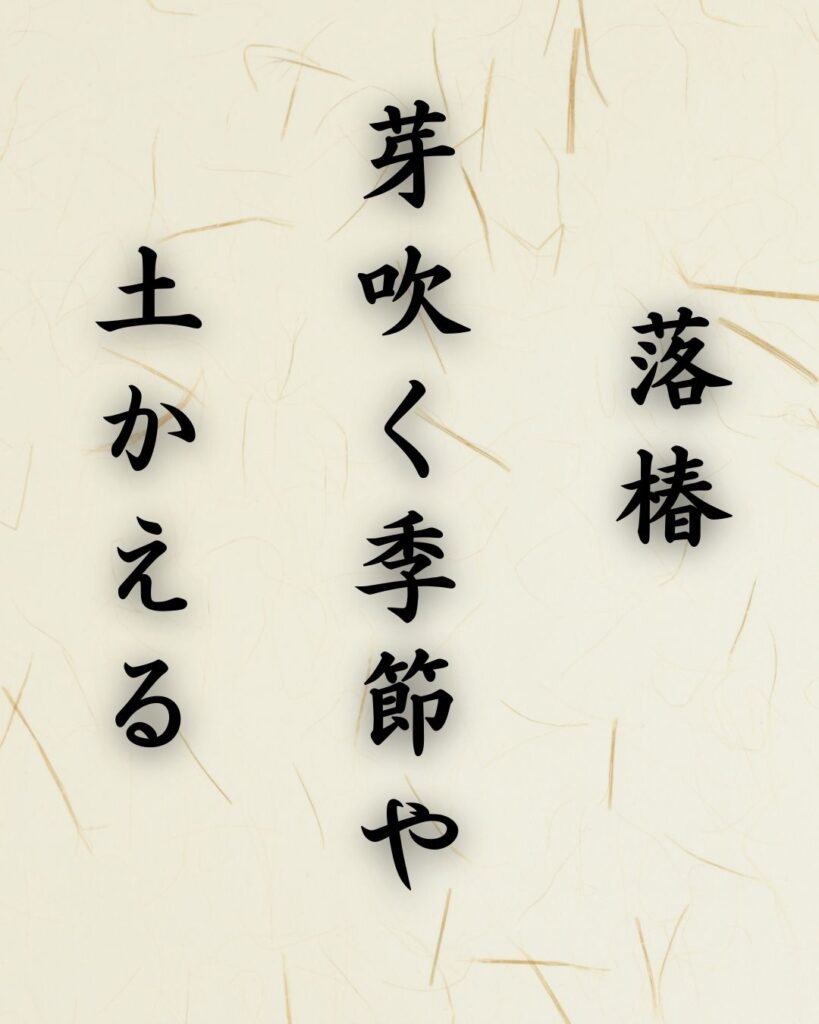 落椿
芽吹く季節や
土かえる